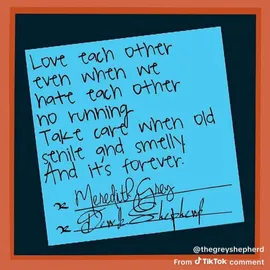 Love each other
even when we
hate each other
no running
Take care when old
senile and smelly
And it's forever.
x Meredith Grey
x Derek Shepherd
@thegreyshepherd
From TikTok comment